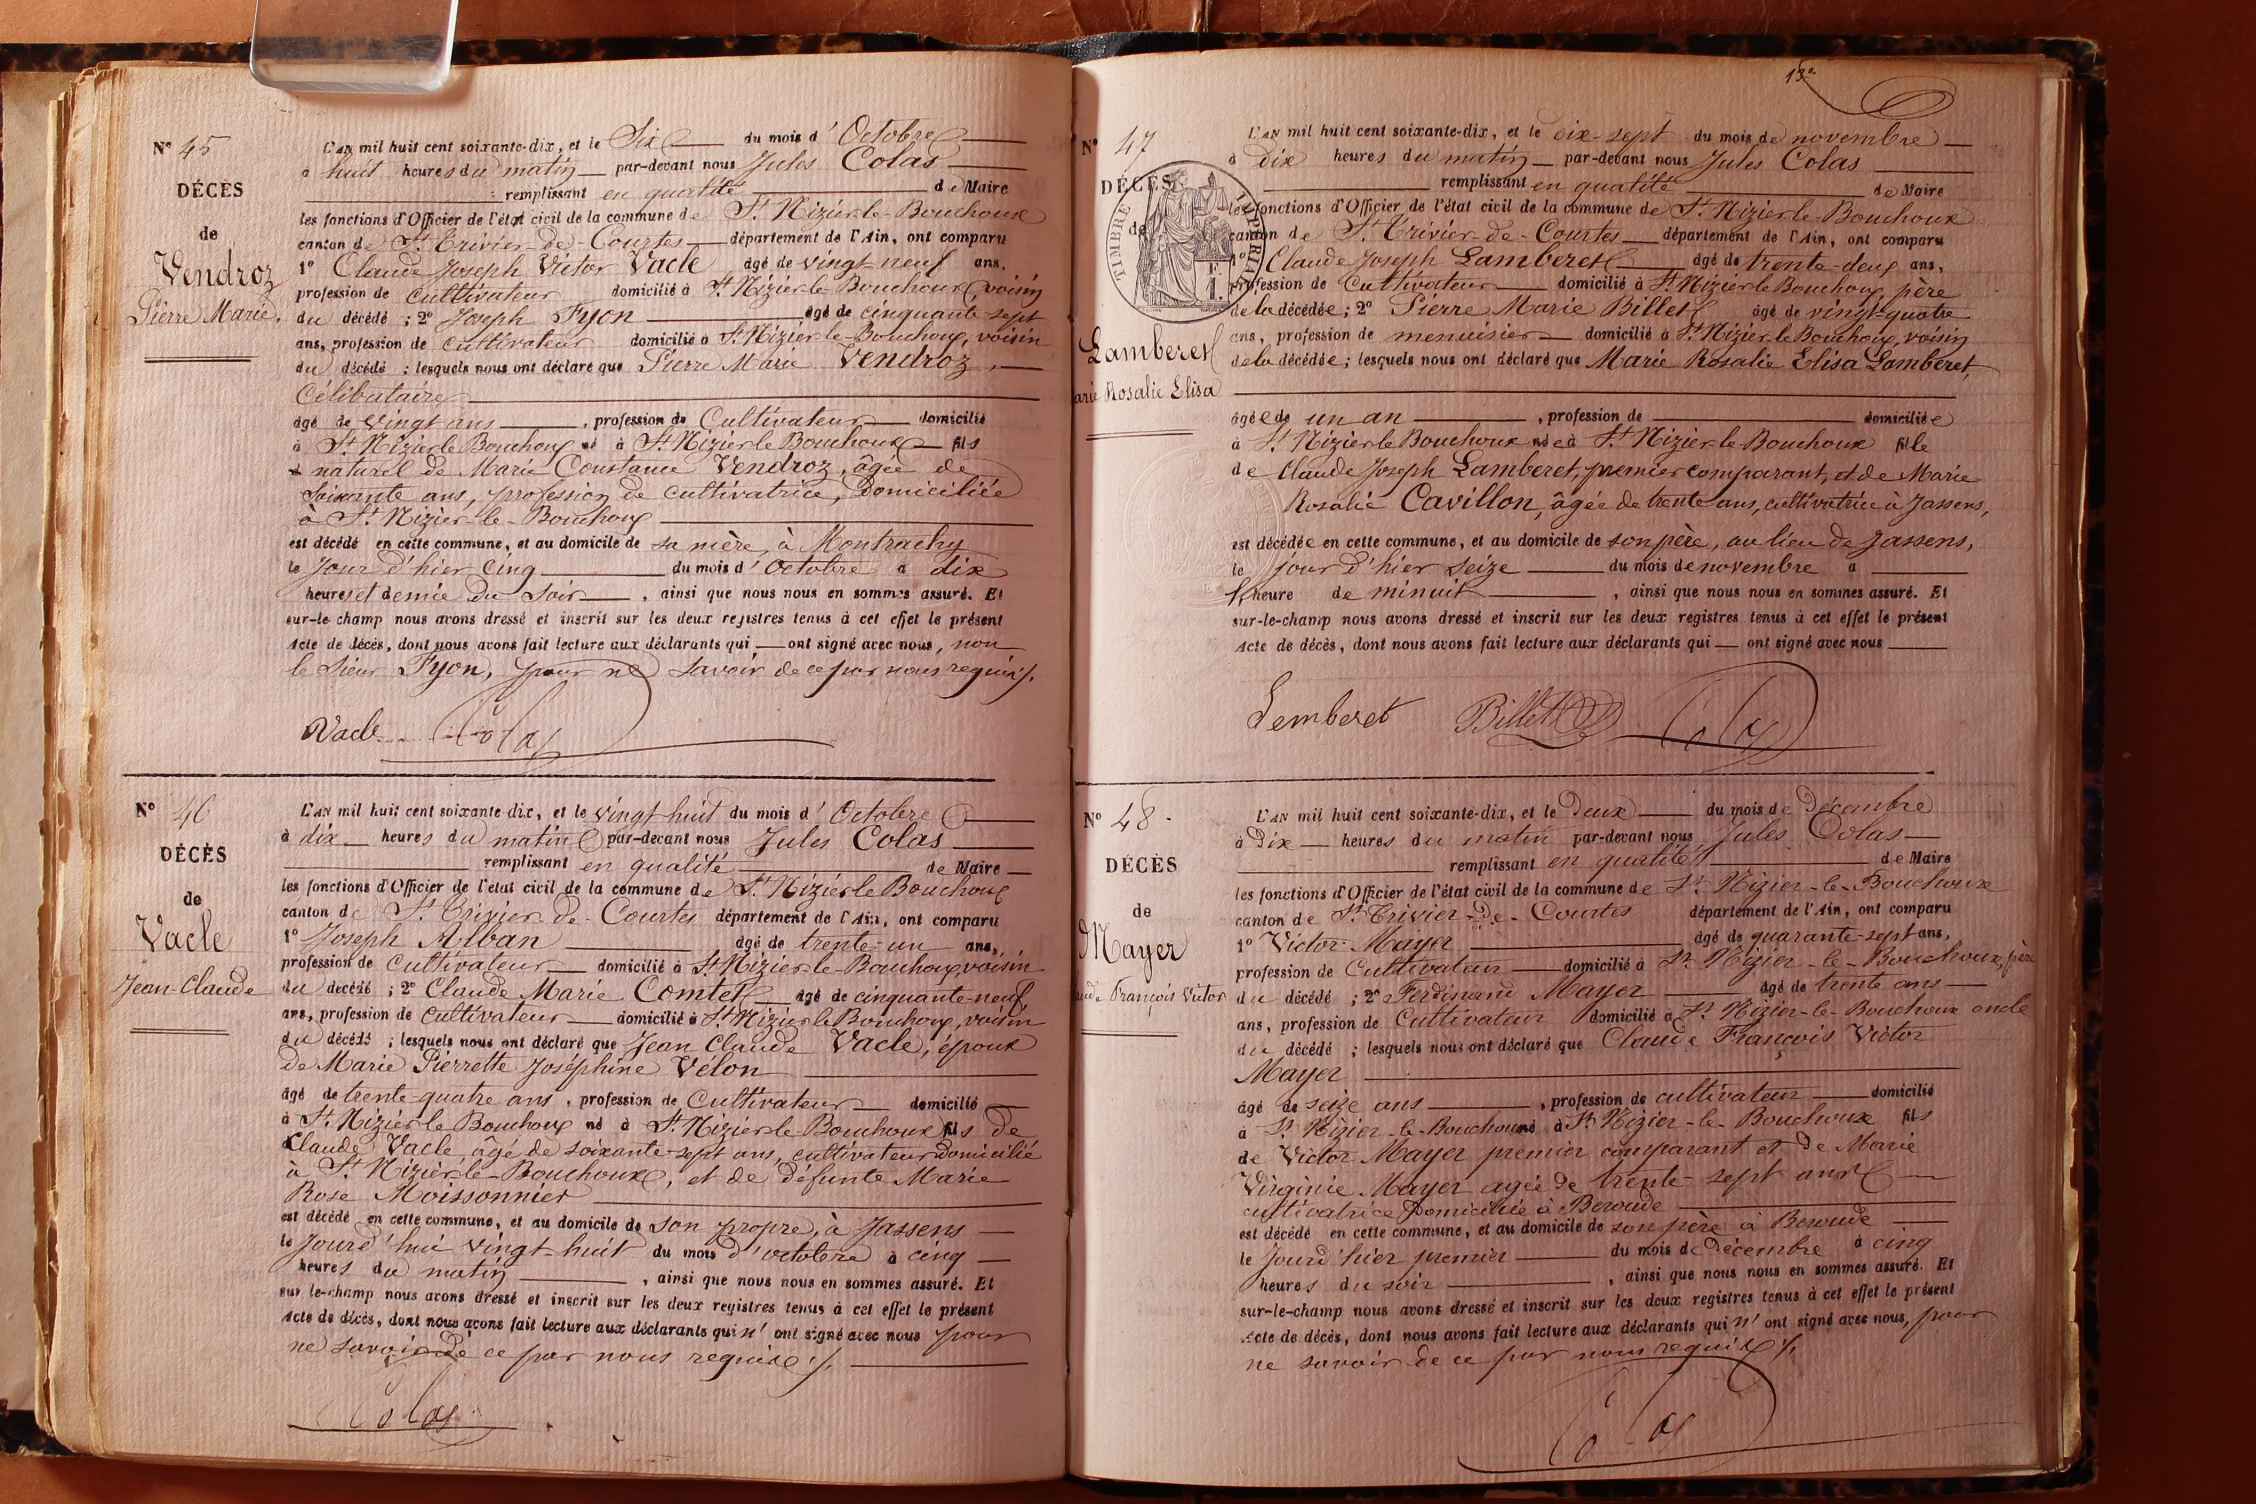 Nº 45
DÉCÈS
de
Vendroz
Pierre Marie.
L'AN mil huit cent soixante-dix, et le Six du mois d'Octobre
à huit heures du matin par-devant nous Jules Colas
remplissant en qualité de Maire
les fonctions d'Officier de l'état civil de la commune de St Nizier-le-Bouchoux
canton de St Trivier-de-Courtes département de l'Ain, ont comparu
1º Claude Joseph Victor Vacle âgé de vingt-neuf ans,
profession de cultivateur domicilié à St Nizier-le-Bouchoux, voisin
du décédé ; 2º Joseph Fyon âgé de cinquante-sept
ans, profession de cultivateur domicilié à St Nizier-le-Bouchoux, voisin
du décédé ; lesquels nous ont déclaré que Pierre Marie Vendroz,
Célibataire
âgé de vingt ans, profession de Cultivateur domicilié
à St Nizier le Bouchoux né à St Nizier le Bouchoux fils
naturel de Marie Constance Vendroz, âgée de
soixante ans, profession de cultivatrice, domiciliée
à St Nizier-le-Bouchoux
est décédé en cette commune, et au domicile de sa mère, à Montrachy
le Jour d'hier Cinq du mois d'Octobre à dix
heures et demie du Soir, ainsi que nous nous en sommes assuré. Et
sur-le-champ nous avons dressé et inscrit sur les deux registres tenus à cet effet le présent
acte de décès, dont nous avons fait lecture aux déclarants qui ont signé avec nous, non
le Sieur Fyon, pour ne savoir de ce par nous requis ./.
Vacle Colas
Nº 46
DÉCÈS
de
Vacle
Jean-Claude
L'AN mil huit cent soixante-dix, et le vingt huit du mois d'Octobre
à dix heures du matin par-devant nous Jules Colas
remplissant en qualité de Maire
les fonctions d'Officier de l'état civil de la commune de St Nizier le Bouchoux
canton de St Trivier-de-Courtes département de l'Ain, ont comparu
1º Joseph Alban âgé de trente-un ans,
profession de cultivateur domicilié à St Nizier-le-Bouchoux, voisin
du décédé ; 2º Claude Marie Comtet âgé de cinquante-neuf
ans, profession de cultivateur domicilié à St Nizier le Bouchoux, voisin
du décédé ; lesquels nous ont déclaré que Jean Claude Vacle, époux
de Marie Pierrette Joséphine Vélon
âgé de trente-quatre ans, profession de Cultivateur domicilié
à St Nizier le Bouchoux né à St Nizier-le Bouchoux fils de
Claude Vacle, âgé de soixante-sept ans, cultivateur domicilié
à St Nizier-le-Bouchoux, et de défunte Marie
Rose Moissonnier
est décédé en cette commune, et au domicile de son propre, à Jassens
le Jourd'hui vingt-huit du mois d'octobre à cinq
heures du matin, ainsi que nous nous en sommes assuré. Et
sur le-champ nous avons dressé et inscrit sur les deux registres tenus à cet effet le présent
acte de décès, dont nous avons fait lecture aux déclarants qui n'ont signé avec nous pour
ne savoir de ce par nous requis ./.
Colas
13e
Nº 47
DÉCÈS
de
TIMBRE IMPÉRIAL
F. 1.
Lamberet
arie Rosalie Elisa
L'AN mil huit cent soixante-dix, et le dix-sept du mois de novembre
à dix heures du matin par-devant nous Jules Colas
remplissant en qualité de Maire
les fonctions d'Officier de l'état civil de la commune de St Nizier-le-Bouchoux
canton de St Trivier-de-Courtes département de l'Ain, ont comparu
1º Claude Joseph Lamberet âgé de trente-deux ans,
profession de Cultivateur domicilié à St Nizier le Bouchoux, père
de la décédée ; 2º Pierre Marie Billet âgé de vingt-quatre
ans, profession de menuisier domicilié à St Nizier-le-Bouchoux, voisin
de la décédée ; lesquels nous ont déclaré que Marie Rosalie Elisa Lamberet,
âgée de un an, profession de domiciliée
à St Nizier le Bouchoux née à St Nizier-le-Bouchoux fille
de Claude Joseph Lamberet, premier comparant, et de Marie
Rosalie Cavillon, âgée de trente ans, cultivatrice à Jassens,
est décédée en cette commune, et au domicile de son père, au lieu de Jassens,
le jour d'hier seize du mois de novembre à
l'heure de minuit, ainsi que nous nous en sommes assuré. Et
sur-le-champ nous avons dressé et inscrit sur les deux registres tenus à cet effet le présent
acte de décès, dont nous avons fait lecture aux déclarants qui ont signé avec nous
Lemberet Billet Colas
Nº 48.
DÉCÈS
de
Mayer
aude François Victor
L'AN mil huit cent soixante-dix, et le Deux du mois de Décembre
à Dix heures du matin par-devant nous Jules Colas
remplissant en qualité de Maire
les fonctions d'Officier de l'état civil de la commune de St Nizier-le-Bouchoux
canton de St Trivier-De-Courtes département de l'Ain, ont comparu
1º Victor Mayer âgé de quarante-sept ans,
profession de Cultivateur domicilié à St Nizier-le-Bouchoux, père
du décédé ; 2º Ferdinand Mayer âgé de trente ans
ans, profession de Cultivateur domicilié à St Nizier-le-Bouchoux oncle
du décédé ; lesquels nous ont déclaré que Claude François Victor
Mayer
âgé de seize ans, profession de cultivateur domicilié
à St Nizier-le-Bouchoux né à St Nizier-le-Bouchoux fils
de Victor Mayer premier comparant et de Marie
Virginie Mayer agée de trente-sept ans
cultivatrice Domiciliée à Beroude
est décédé en cette commune, et au domicile de son père à Beroude
le Jourd'hier premier du mois de Décembre à cinq
heures du soir, ainsi que nous nous en sommes assuré. Et
sur-le-champ nous avons dressé et inscrit sur les deux registres tenus à cet effet le présent
acte de décès, dont nous avons fait lecture aux déclarants qui n'ont signé avec nous, pour
ne savoir de ce par nous requis ./.
Colas